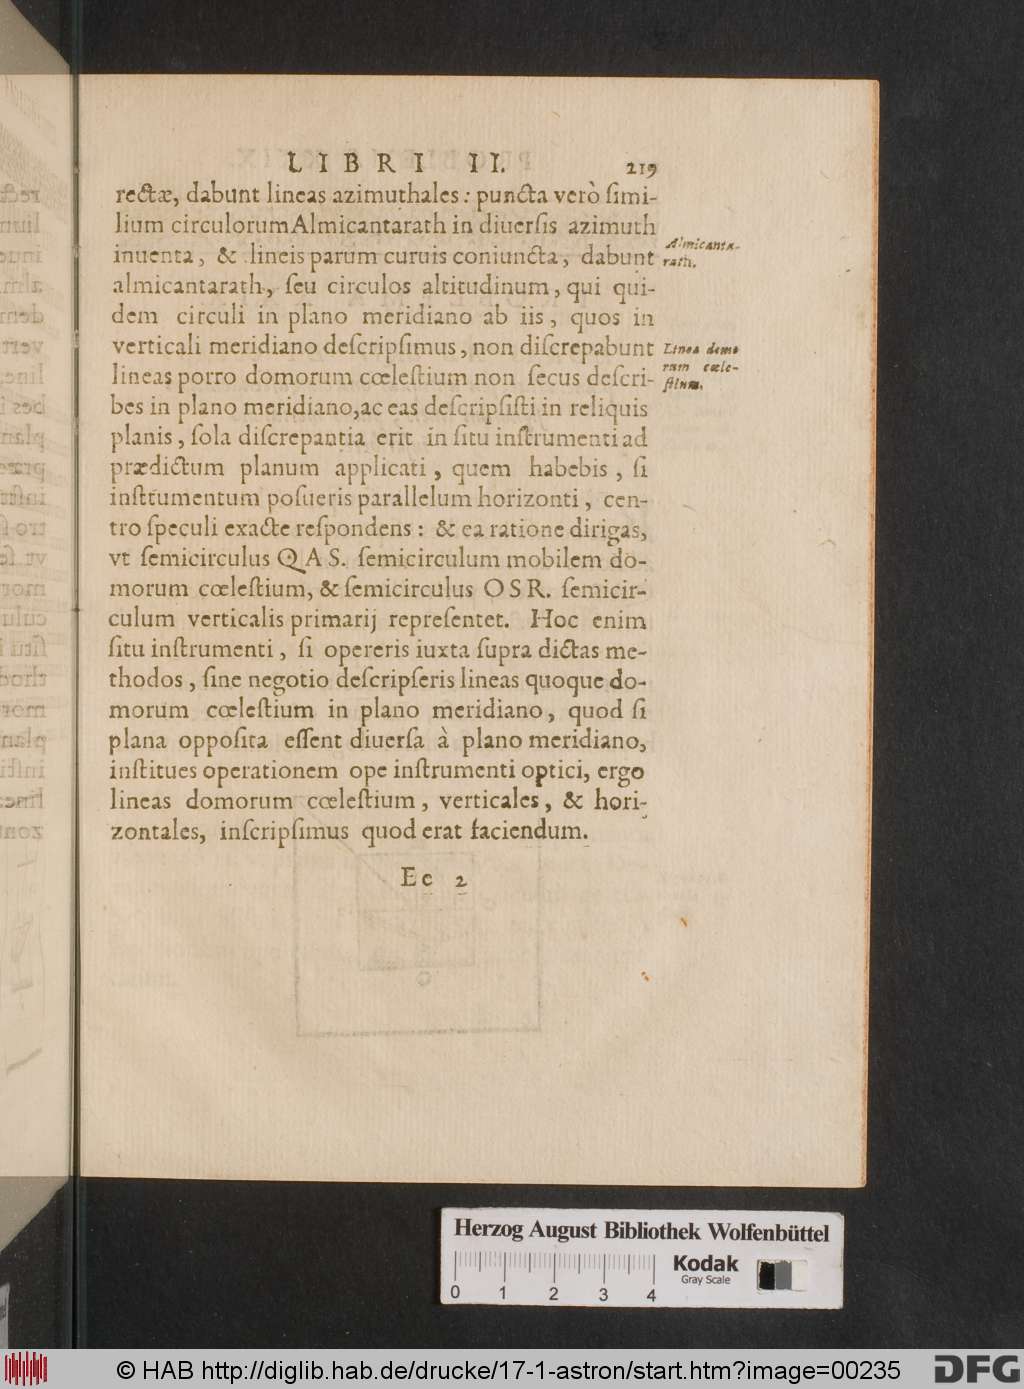 LIBRI II. 219
rectæ, dabunt lineas azimuthales : puncta verò ſimi-
lium circulorum Almicantarath in diuerſis azimuth
inuenta, & lineis parum curuis coniuncta, dabunt
almicantarath, ſeu circulos altitudinum, qui qui-
dem circuli in plano meridiano ab iis, quos in
verticali meridiano deſcripſimus, non diſcrepabunt
lineas porro domorum cœleſtium non ſecus deſcri-
bes in plano meridiano, ac eas deſcripſiſti in reliquis
planis, ſola diſcrepantia erit in ſitu inſtrumenti ad
prædictum planum applicati, quem habebis, ſi
inſtrumentum poſueris parallelum horizonti, cen-
tro ſpeculi exacte reſpondens : & ea ratione dirigas,
vt ſemicirculus QAS. ſemicirculum mobilem do-
morum cœleſtium, & ſemicirculus OSR. ſemicir-
culum verticalis primarij repreſentet. Hoc enim
ſitu inſtrumenti, ſi opereris iuxta ſupra dictas me-
thodos, ſine negotio deſcripſeris lineas quoque do-
morum cœleſtium in plano meridiano, quod ſi
plana oppoſita eſſent diuerſa à plano meridiano,
inſtitues operationem ope inſtrumenti optici, ergo
lineas domorum cœleſtium, verticales, & hori-
zontales, inſcripſimus quod erat faciendum.
Ee 2
Almicanta-
rath.
Linea domo
rum cœle-
ſtium.
Herzog August Bibliothek Wolfenbüttel
Kodak
Gray Scale
0 1 2 3 4
© HAB http://diglib.hab.de/drucke/17-1-astron/start.htm?image=00235
DFG